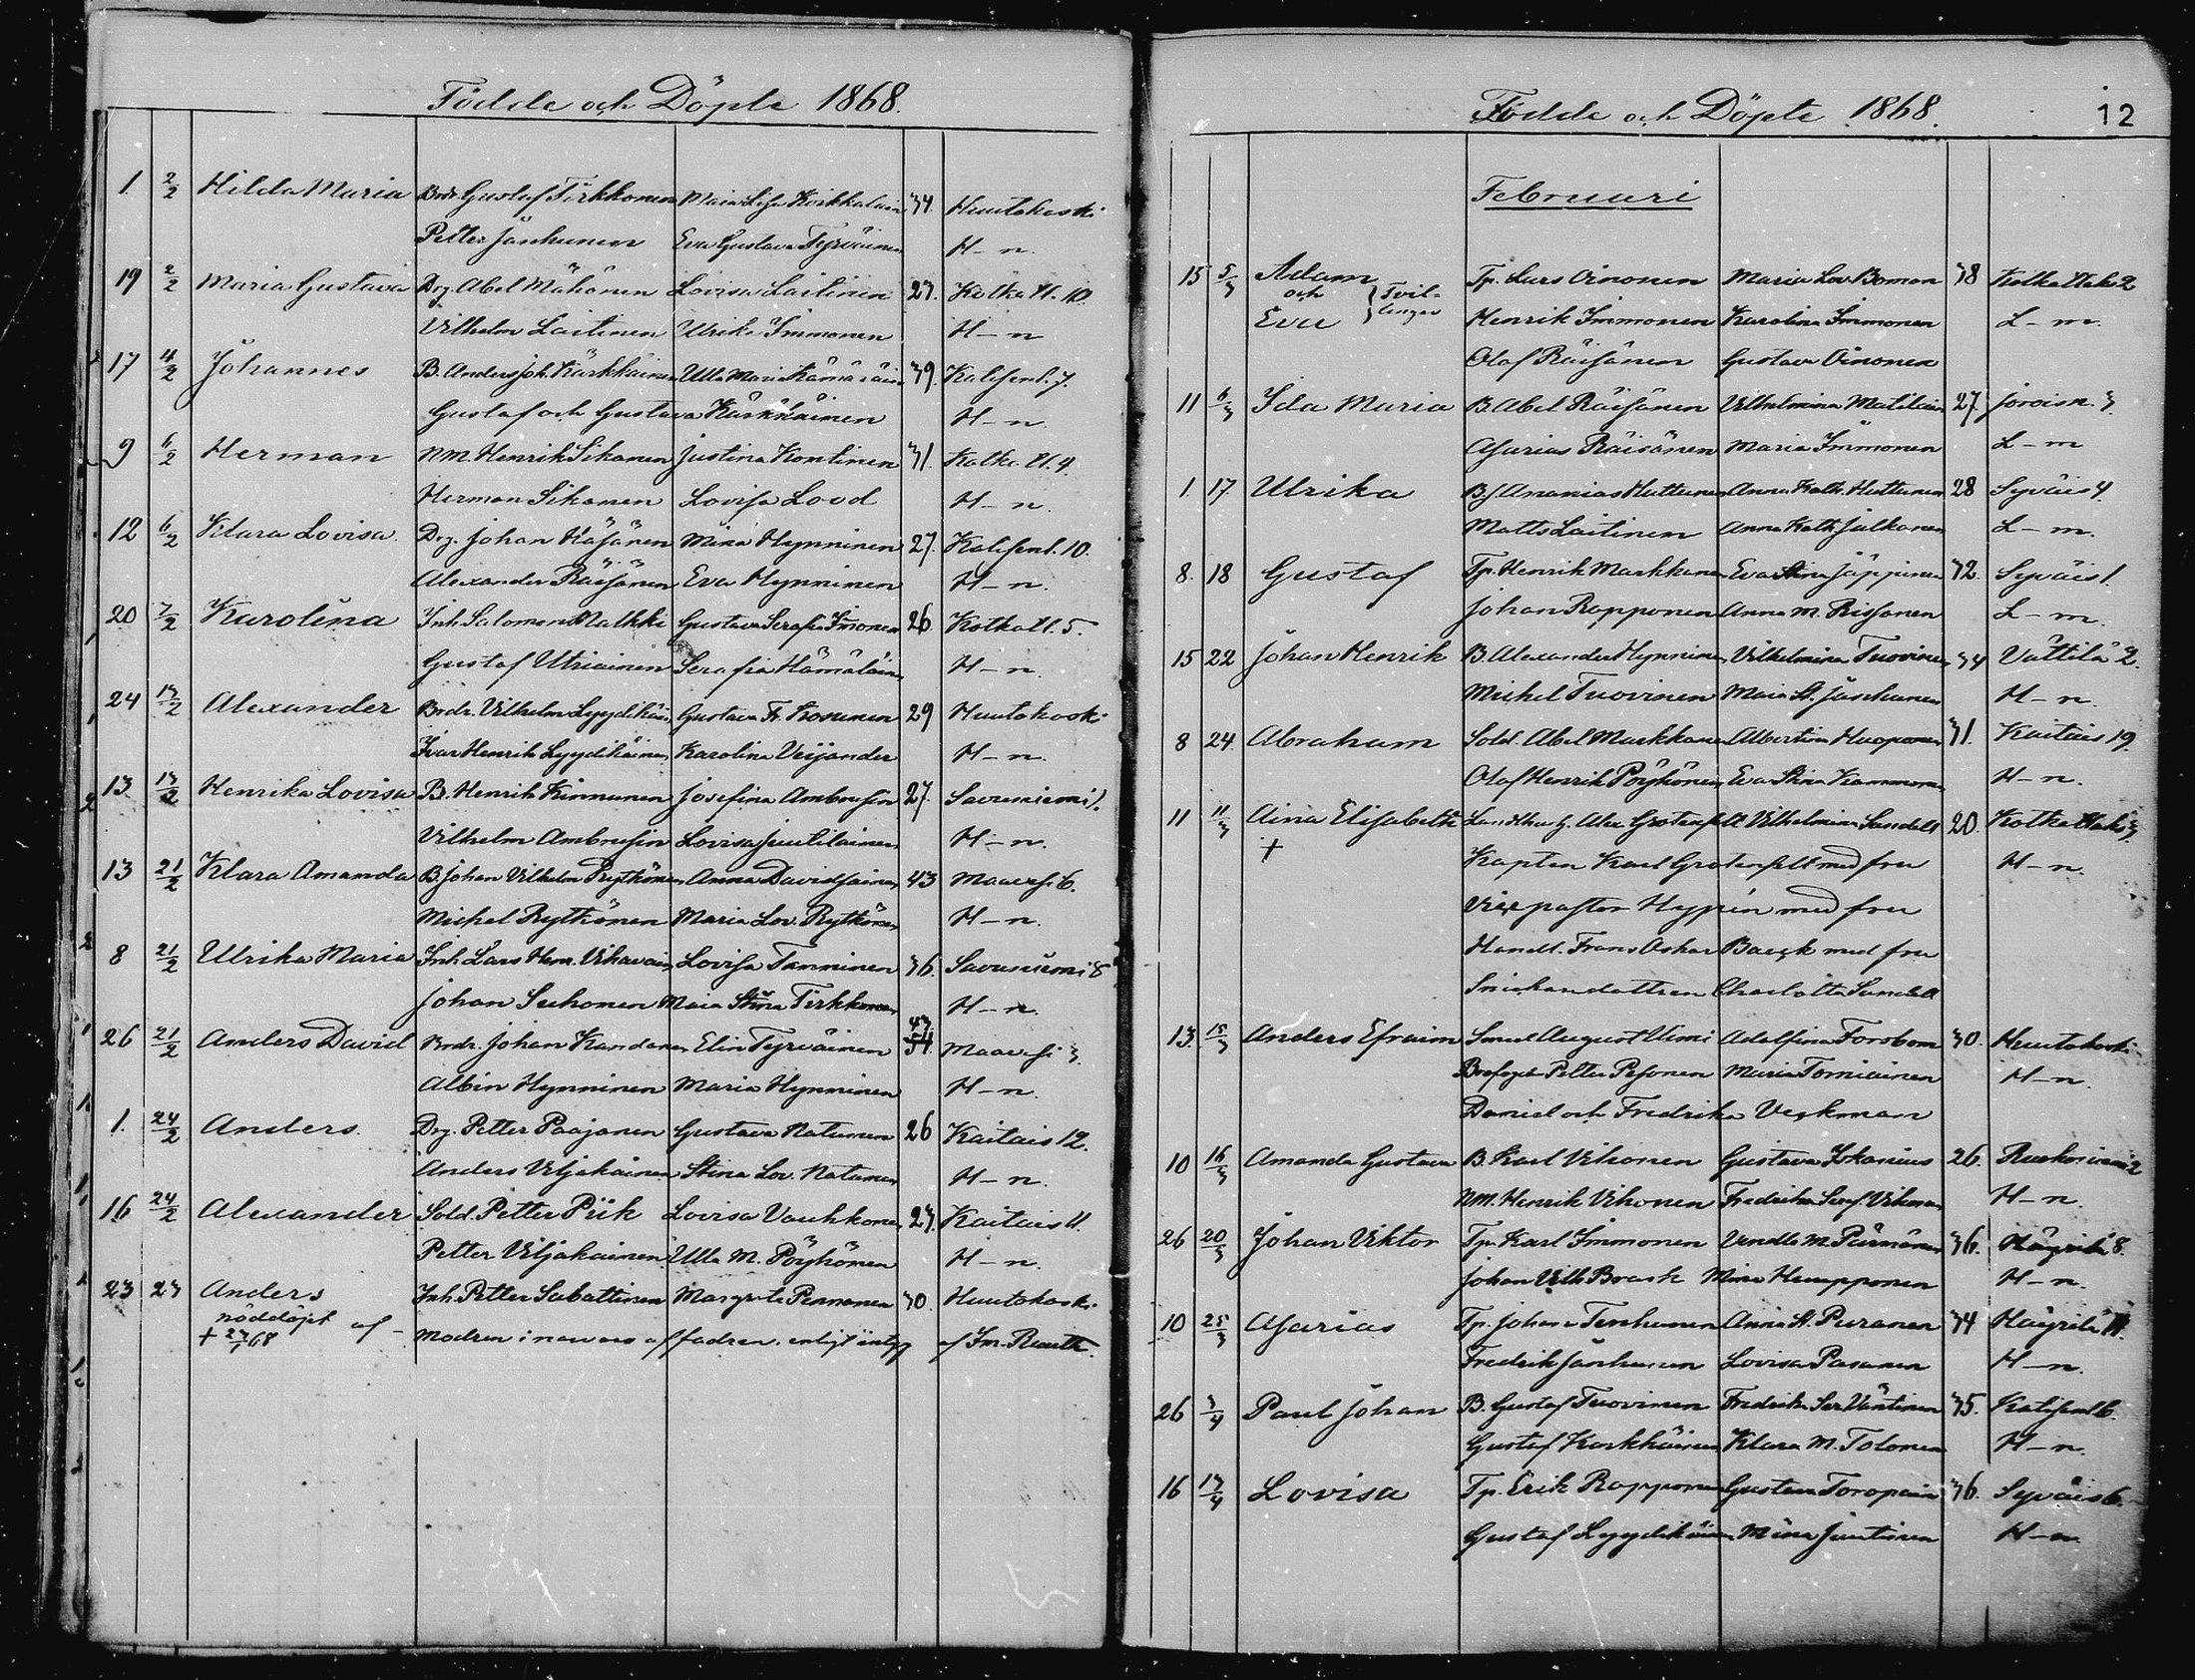 Födde och Döpte 1868.
1. 2/2 Hilda Maria Brdr. Gustaf Tirkkonen Maia Lisa Korkkalain 34. Huutokoski
Petter Janhunen Eva Gustava Tyrväinen H-n.
19 2/2 Maria Gustava Drg. Abel Mähönen Lovisa Laitinen 23. Kotkatl. 10.
Vilhelm Laitinen Ulrika Immonen H-n
17 4/2 Johannes B. Anders Joh. Karkkäinen Ulla Maria Kämäräin 39. Kalifenl. 7.
Gustaf och Gustava Karkkäinen H-n.
9 6/2 Herman Nm. Henrik Sikanen Justina Kontinen 31. Kotkatl. 4.
Herman Sikanen Lovisa Lood H-n.
12 6/2 Klara Lovisa Drg. Johan Mina Hynninen 27. Kalifenl. 10.
Alexander Räisänen Eva Hynninen H-n.
20 7/2 Karolina Inh. Salomon Malkki Gustava Serafia Immonen 26 Kotkatl. 5.
Gustaf Utriainen Serafia Hämäläinen H-n.
24 13/2 Alexander Brdr. Vilhelm Lyydikäin Gustava Fr. Kosunen 29 Huutokoski
Ivar Henrik Lyydikäinen Karolina Veijander H-n.
13 13/2 Henrika Lovisa B. Henrik Kinnunen Josefina Ambrusin 27. Savuniemi 1.
Vilhelm Ambrusin Lovisa Juutilainen H-n.
13 21/2 Klara Amanda B. Johan Vilhelm Rytkönen Anna Davidsainen 43 Maavesi 6.
Michel Rytkönen Maria Lov. Rytkönen H-n.
8 21/2 Ulrika Maria Inh. Lars Henr. Vihavain Lovisa Tanninen 36. Savuniemi 8
Johan Suhonen Maia Stina Tirkkonen H-n.
26 21/2 Anders David Brdr. Johan Kandanen Elin Tyrväinen 43 34. Maavesi 3.
Albin Hynninen Maria Hynninen H-n.
1. 24/2 Anders. Drg. Petter Paajanen Gustava Natunen 26 Kaitais 12.
Anders Viljakainen Stina Lov. Natunen H-n.
16 24/2 Alexander Sold. Petter Piik Lovisa Vauhkonen 23. Kaitais 11.
Petter Viljakainen Ulla M. Pöyhönen H-n.
23 23 Anders Inh. Petter Sabattinen Margreta Pennanen 30. Huutokoski
nöddöpt af modren i närvaro af fadren, enligt intyg af Im. Ruuth.
+ 23/2 68
Födde och Döpte 1868. 12
Februari
15 5/3 Adam Tp. Lars Oinonen Maria Lov. Boman 38 Kotkatlaks 2
och } Tvil-
Eva } lingar Henrik Immonen Karolina Immonen L-m.
Olof Räisänen Gustava Oinonen
11 6/3 Ida Maria B. Abel Räisänen Vilhelmina Matilain 27. Joroisn. 3.
Asarias Räisänen Maria Immonen L-m
1. 17. Ulrika Bs. Ananias Huttunen Anna Kath. Huttunen 28 Syväis 4.
Matts Laitinen Anna Kath. Julkanen L-m.
8. 18 Gustaf Tp. Henrik Markkanen Eva Stina Jäppinen 32. Syväis 1.
Johan Rapponen Anna M. Rissanen L-m.
15 22 Johan Henrik B. Alexander Hynninen Vilhelmina Tuovinen 34 Vättilä 2.
Michel Tuovinen Maia St. Janhunen H-n.
8 24. Abraham Sold. Abel Markkanen Albertina Haaponen 31. Kaitais 19.
Olof Henrik Pöyhönen Eva Stina Kammonen H-n.
11 11/3 Aina Elisabeth Landthush. Alex Grotenfelt Vilhelmina Sundell 20. Kotkatlaks 3.
+ Kapten Karl Grotenfelt med fru H-n.
Vicepastor Hypén med fru
Handl. Frans Oskar Baeck med fru
Snickaredottren Charlotta Sundell
13 15/3 Anders Efraim Smed August Uimi Adolfina Forsbom 30. Huutokoski
Brofogd. Petter Pesonen Maria Torniainen H-n.
Daniel och Fredrika Veckman
10 16/3 Amanda Gustava B. Karl Vihonen Gustava Iskanius 26. Ruokoniemi 2
Nm. Henrik Vihonen Fredrika Seraf. Vihonen H-n.
26 20/3 Johan Viktor Tp. Karl Immonen Vendla M. Pärnänen 36. Häyrilä 8.
Johan Vilh. Brask Mina Haapponen H-n.
10 25/3 Asarias Tp. Johan Tenhunen Anna St. Puranen 34 Häyrilä 11.
Fredrik Janhunen Lovisa Pasanen H-n.
26 3/4 Paul Johan B. Gustaf Tuovinen Fredrika Ser. Väntinen 35. Kalifenl. 6.
Gustaf Karkkäinen Klara M. Tolonen H-n.
16 13/4 Lovisa Tp. Erik Rapponen Gustava Toropain 36. Syväis 6.
Gustaf Lyydikäinen Mina Juutinen H-n.